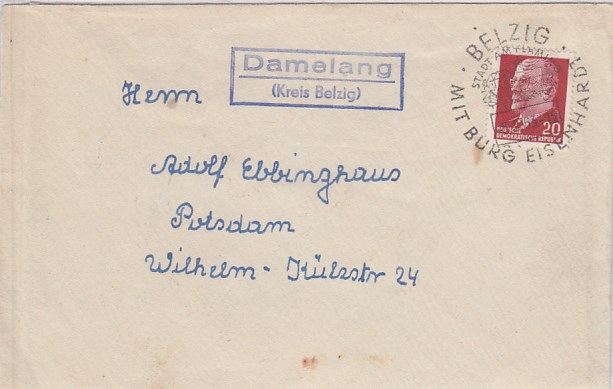 Damelang
(Kreis Belzig)
BELZIG
MIT BURG EISENHARDT
STADT AM
20
DEUTSCHE
DEMOKRATISCHE REPUBLIK
Herrn
Adolf Ebbinghaus
Potsdam
Wilhelm-Külzstr 24